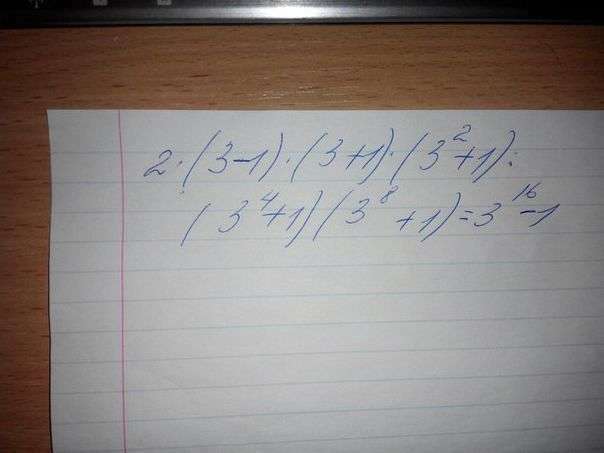 2·(3-1)·(3+1)·(3²+1)·
(3⁴+1)(3⁸+1)=3¹⁶-1